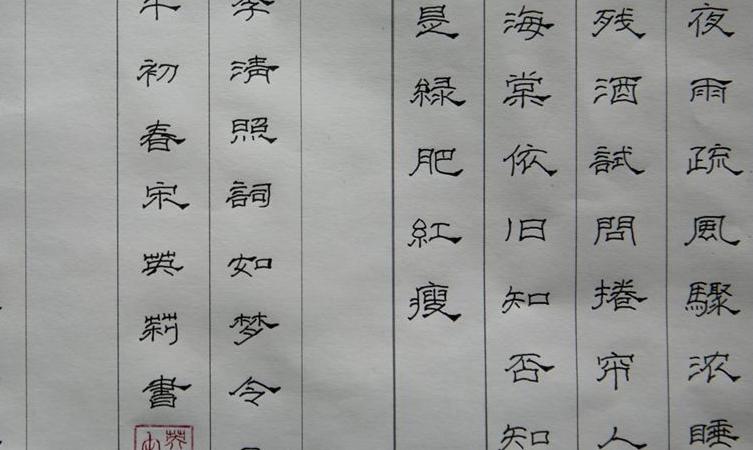 夜雨疏風驟浓睡
残酒試問捲帘人
海棠依旧知否知
是緑肥紅瘦
李清照詞如梦令
初春宋英莉書